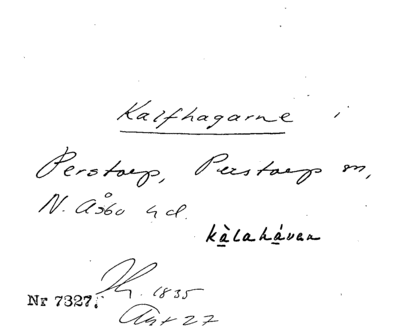 Kalfhagarne i
Perstorp, Perstorp sn,
N. Åsbo hd.
kàlahávan
Nr 7327.
1835
Akt 27